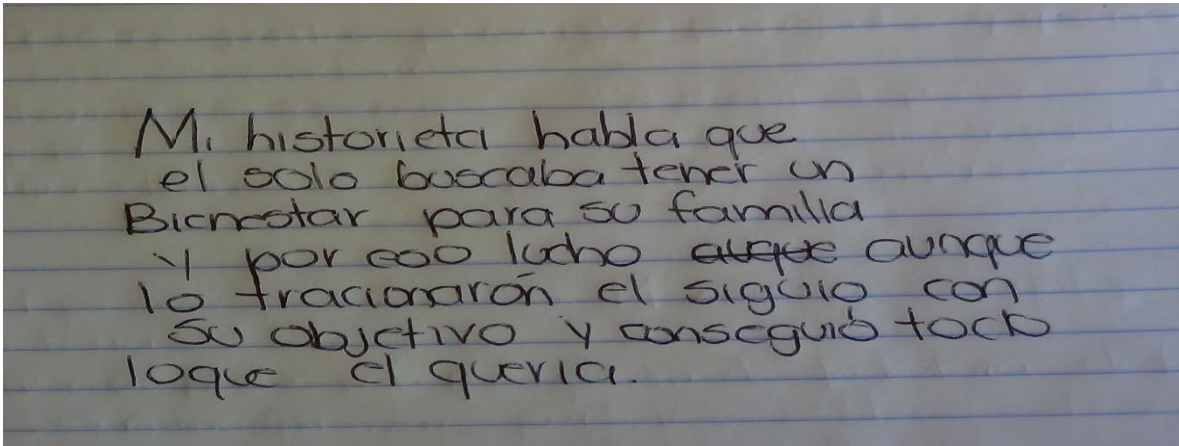 Mi historieta habla que
el solo buscaba tener un
Bienestar para su familia
y por eso lucho aunque
lo tracionarón el siguio con
su objetivo y conseguió todo
loque el queria.